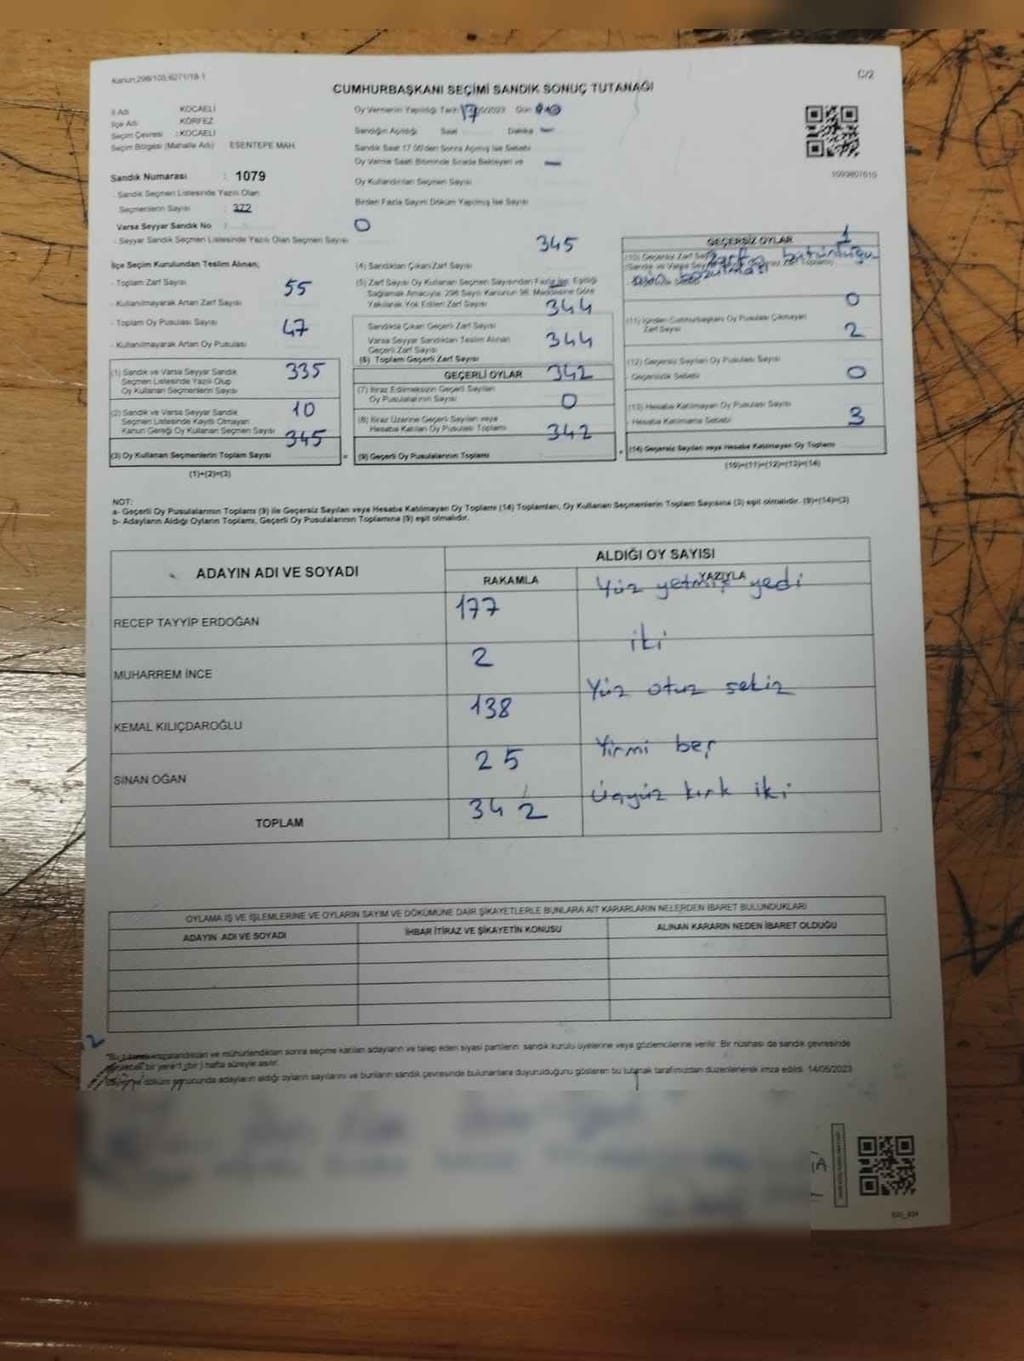 Kanun:298/105,6271/18-1
C/2
CUMHURBAŞKANI SEÇİMİ SANDIK SONUÇ TUTANAĞI
İl Adı KOCAELİ
İlçe Adı KÖRFEZ
Seçim Çevresi : KOCAELİ
Seçim Bölgesi (Mahalle Adı) ESENTEPE MAH.
Sandık Numarası : 1079
Sandık Seçmen Listesinde Yazılı Olan
Seçmenlerin Sayısı : 372
Varsa Seyyar Sandık No
- Seyyar Sandık Seçmen Listesinde Yazılı Olan Seçmen Sayısı
0
Oy Vermenin Yapıldığı Tarih
Sandığın Açıldığı Saat Dakika
Sandık Saat 17.00'den Sonra Açılmış İse Sebebi
Oy Verme Saati Bitiminde Sırada Bekleyen ve
Oy Kullandırılan Seçmen Sayısı
Birden Fazla Sayım Döküm Yapılmış İse Sayısı
1093807610
İlçe Seçim Kurulundan Teslim Alınan;
- Toplam Zarf Sayısı
55
- Kullanılmayarak Artan Zarf Sayısı
- Toplam Oy Pusulası Sayısı
47
- Kullanılmayarak Artan Oy Pusulası
335
(1) Sandık ve Varsa Seyyar Sandık
Seçmen Listesinde Yazılı Olup
Oy Kullanan Seçmenlerin Sayısı
10
(2) Sandık ve Varsa Seyyar Sandık
Seçmen Listesinde Kayıtlı Olmayan
Kanun Gereği Oy Kullanan Seçmen Sayısı
345
(3) Oy Kullanan Seçmenlerin Toplam Sayısı
(1)+(2)=(3)
345
(4) Sandıktan Çıkan Zarf Sayısı
(5) Zarf Sayısı Oy Kullanan Seçmen Sayısından Fazla İse, Eşitliği
Sağlamak Amacıyla, 298 Sayılı Kanunun 98. Maddesine Göre
Yakılarak Yok Edilen Zarf Sayısı
344
Sandıkta Çıkan Geçerli Zarf Sayısı
Varsa Seyyar Sandıktan Teslim Alınan
Geçerli Zarf Sayısı
344
(6) Toplam Geçerli Zarf Sayısı
GEÇERLİ OYLAR
342
(7) İtiraz Edilmeksizin Geçerli Sayılan
Oy Pusulalarının Sayısı
0
(8) İtiraz Üzerine Geçerli Sayılan veya
Hesaba Katılan Oy Pusulası Toplamı
342
(9) Geçerli Oy Pusulalarının Toplamı
GEÇERSİZ OYLAR
1
(10) Geçersiz Zarf
Zarfın bütünlüğü
bozulması
0
(11) İçinden Cumhurbaşkanı Oy Pusulası Çıkmayan
Zarf Sayısı
2
(12) Geçersiz Sayılan Oy Pusulası Sayısı
Geçersizlik Sebebi
0
(13) Hesaba Katılmayan Oy Pusulası Sayısı
- Hesaba Katılmama Sebebi
3
(14) Geçersiz Sayılan veya Hesaba Katılmayan Oy Toplamı
(10)+(11)+(12)+(13)=(14)
NOT:
a- Geçerli Oy Pusulalarının Toplamı (9) ile Geçersiz Sayılan veya Hesaba Katılmayan Oy Toplamı (14) Toplamları, Oy Kullanan Seçmenlerin Toplam Sayısına (3) eşit olmalıdır. (9)+(14)=(3)
b- Adayların Aldığı Oyların Toplamı, Geçerli Oy Pusulalarının Toplamına (9) eşit olmalıdır.
ADAYIN ADI VE SOYADI
ALDIĞI OY SAYISI
RAKAMLA YAZIYLA
RECEP TAYYİP ERDOĞAN 177 Yüz yetmiş yedi
MUHARREM İNCE 2 iki
KEMAL KILIÇDAROĞLU 138 Yüz otuz sekiz
SİNAN OĞAN 25 Yirmi beş
TOPLAM 342 Üçyüz kırk iki
OYLAMA İŞ VE İŞLEMLERİNE VE OYLARIN SAYIM VE DÖKÜMÜNE DAİR ŞİKAYETLERLE BUNLARA AİT KARARLARIN NELERDEN İBARET BULUNDUKLARI
ADAYIN ADI VE SOYADI İHBAR İTİRAZ VE ŞİKAYETİN KONUSU ALINAN KARARIN NEDEN İBARET OLDUĞU
imzalandıktan ve mühürlendikten sonra seçime katılan adayların ve talep eden siyasi partilerin sandık kurulu üyelerine veya gözlemcilerine verilir. Bir nüshası da sandık çevresinde
bir yere 1 (bir) hafta süreyle asılır.
döküm sonucunda adayların aldığı oyların sayılarını ve bunların sandık çevresinde bulunanlara duyurulduğunu gösteren bu tutanak tarafımızdan düzenlenerek imza edildi. 14/05/2023